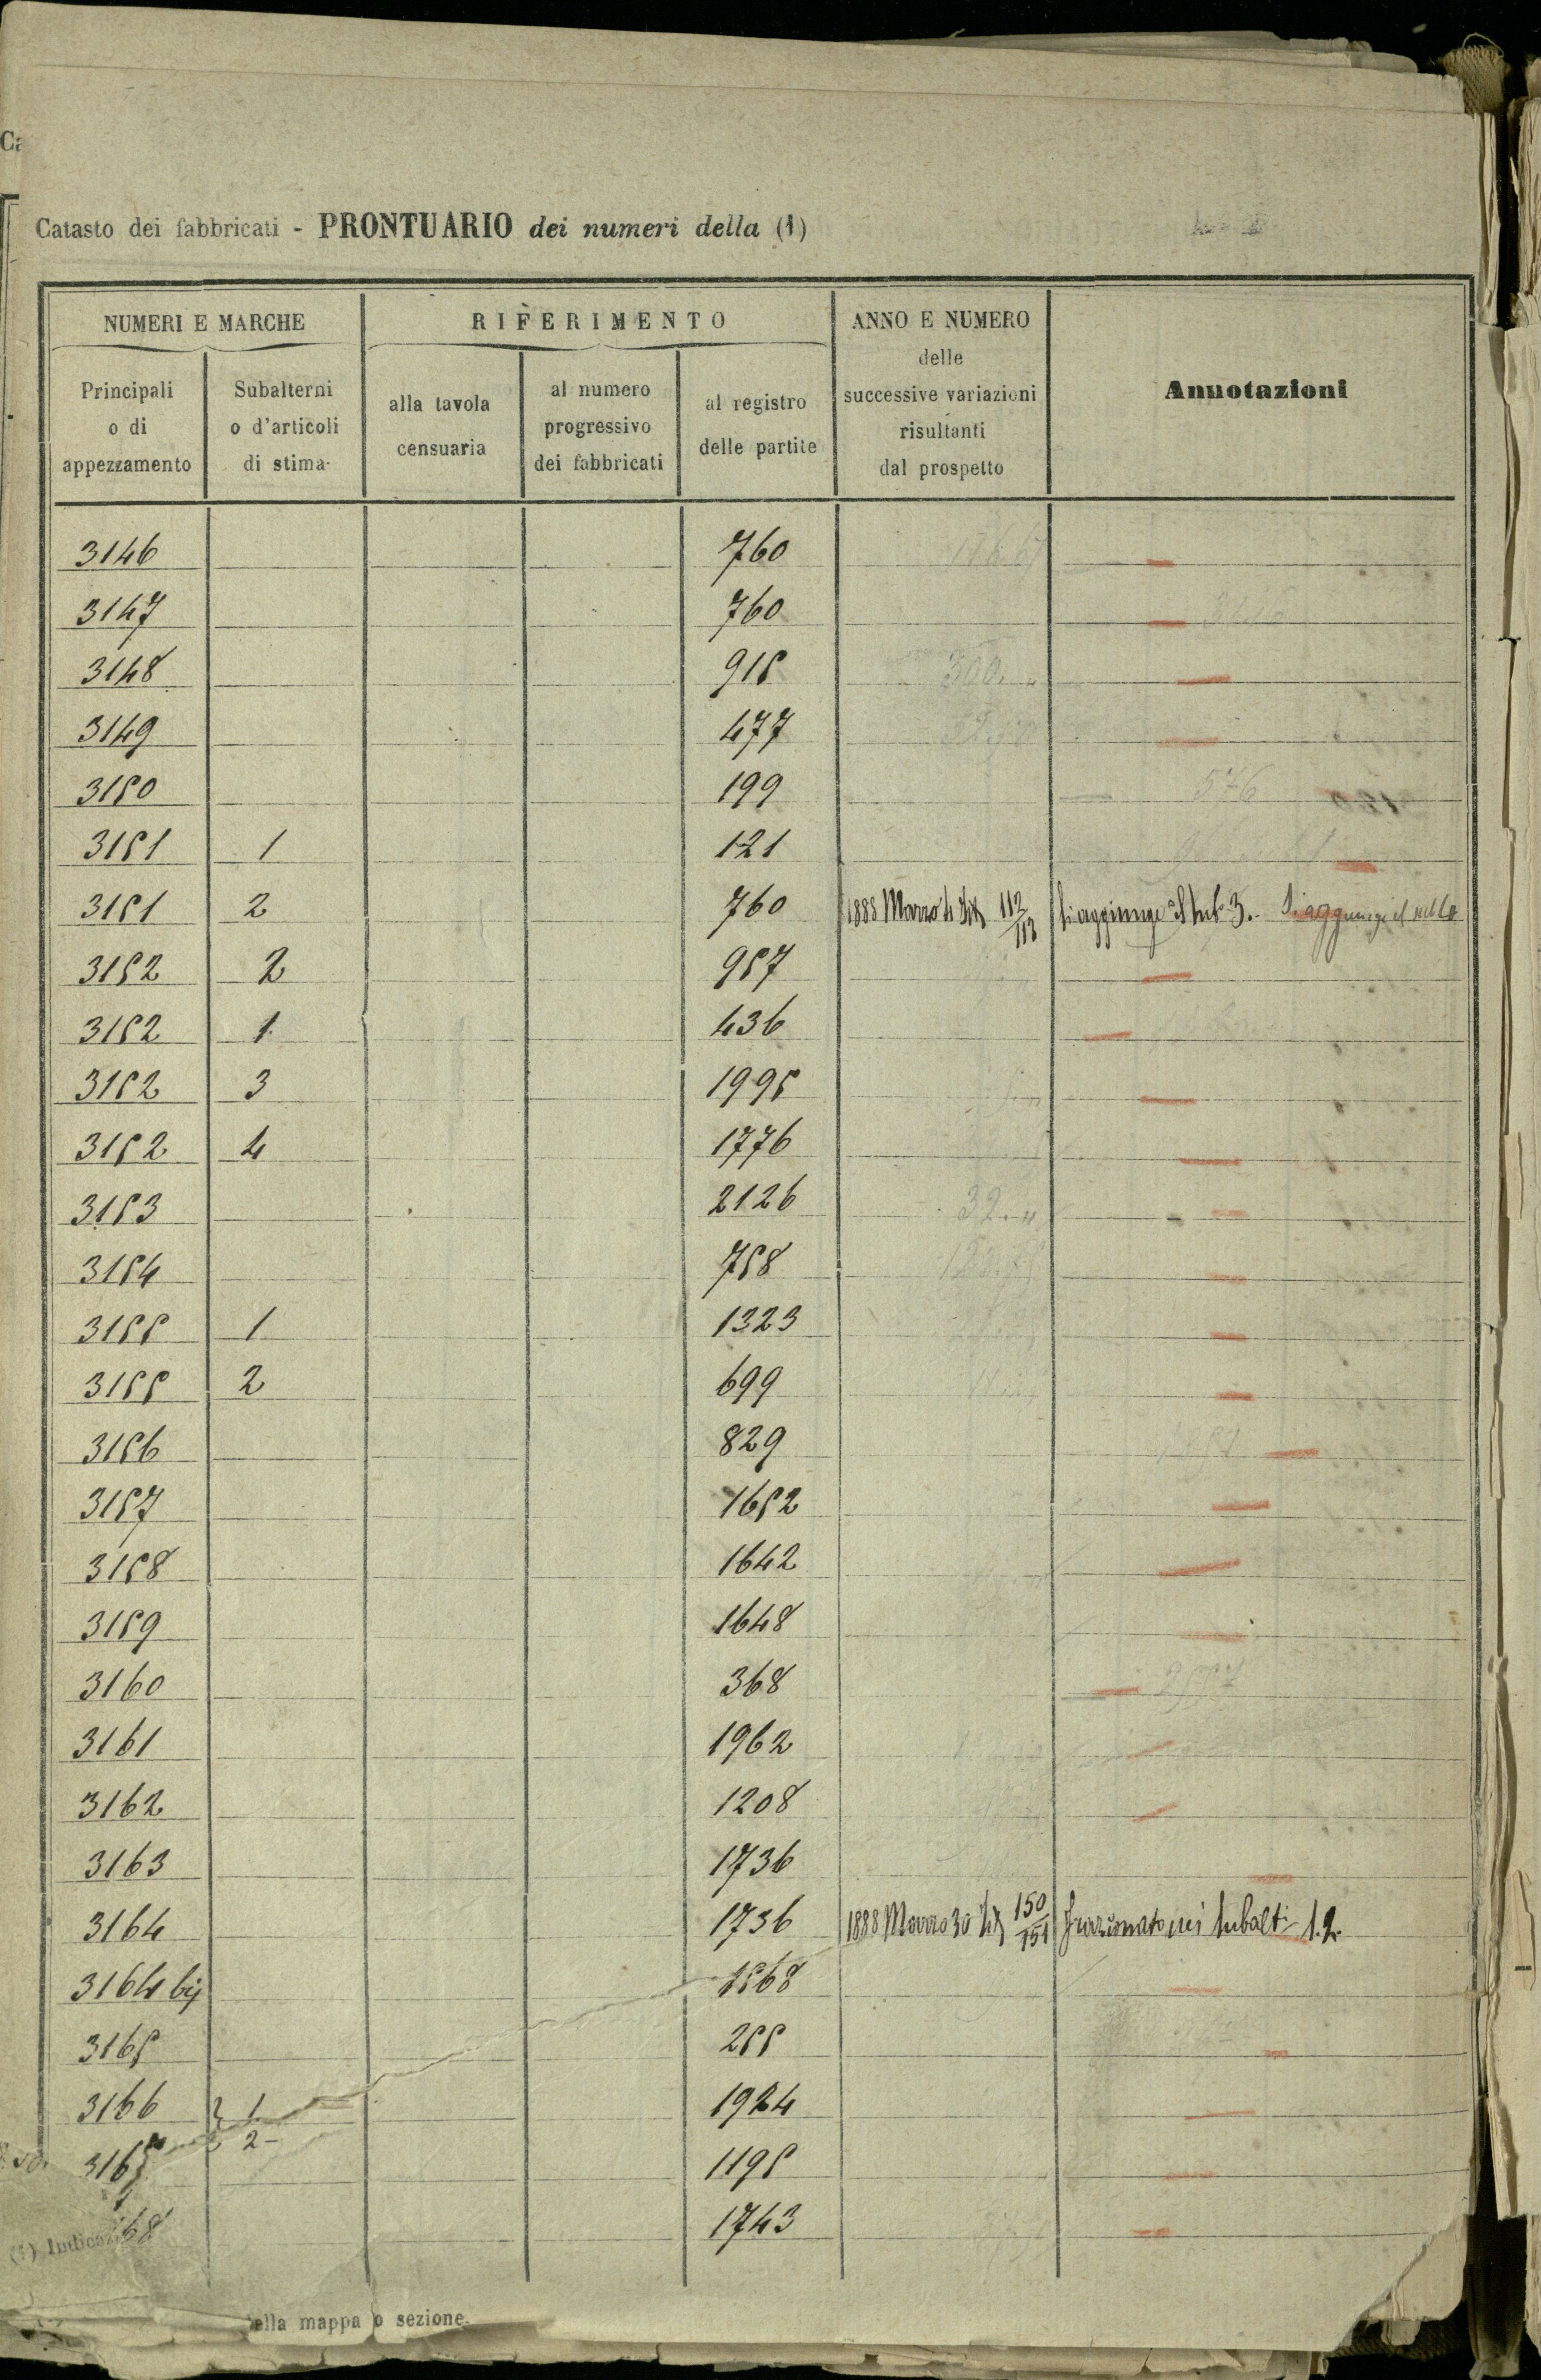 Catasto dei fabbricati - PRONTUARIO dei numeri della (1)
NUMERI E MARCHE
RIFERIMENTO
ANNO E NUMERO
delle
successive variazioni
risultanti
dal prospetto
Annotazioni
Principali
o di
appezzamento
Subalterni
o d'articoli
di stima
alla tavola
censuaria
al numero
progressivo
dei fabbricati
al registro
delle partite
3146 760
3147 760
3148 915 300
3149 477
3150 199 576
3151 1 121
3151 2 760 1888 Marzo 4 112/113 Si aggiunge il sub. 3. Si aggiunge il sub
3152 2 957
3152 1 436
3152 3 1995
3152 4 1776
3153 2126 32
3154 758
3155 1 1323
3155 2 699
3156 829
3157 1652
3158 1642
3159 1648
3160 368
3161 1962
3162 1208
3163 1736
3164 1736 1888 Marzo 30 150/151 frazionato nei subalti 1.2.
3164 bis 1568
3165 255
3166 1 1924
2
3167 1195
68 1743
(1) Indica
ella mappa o sezione.